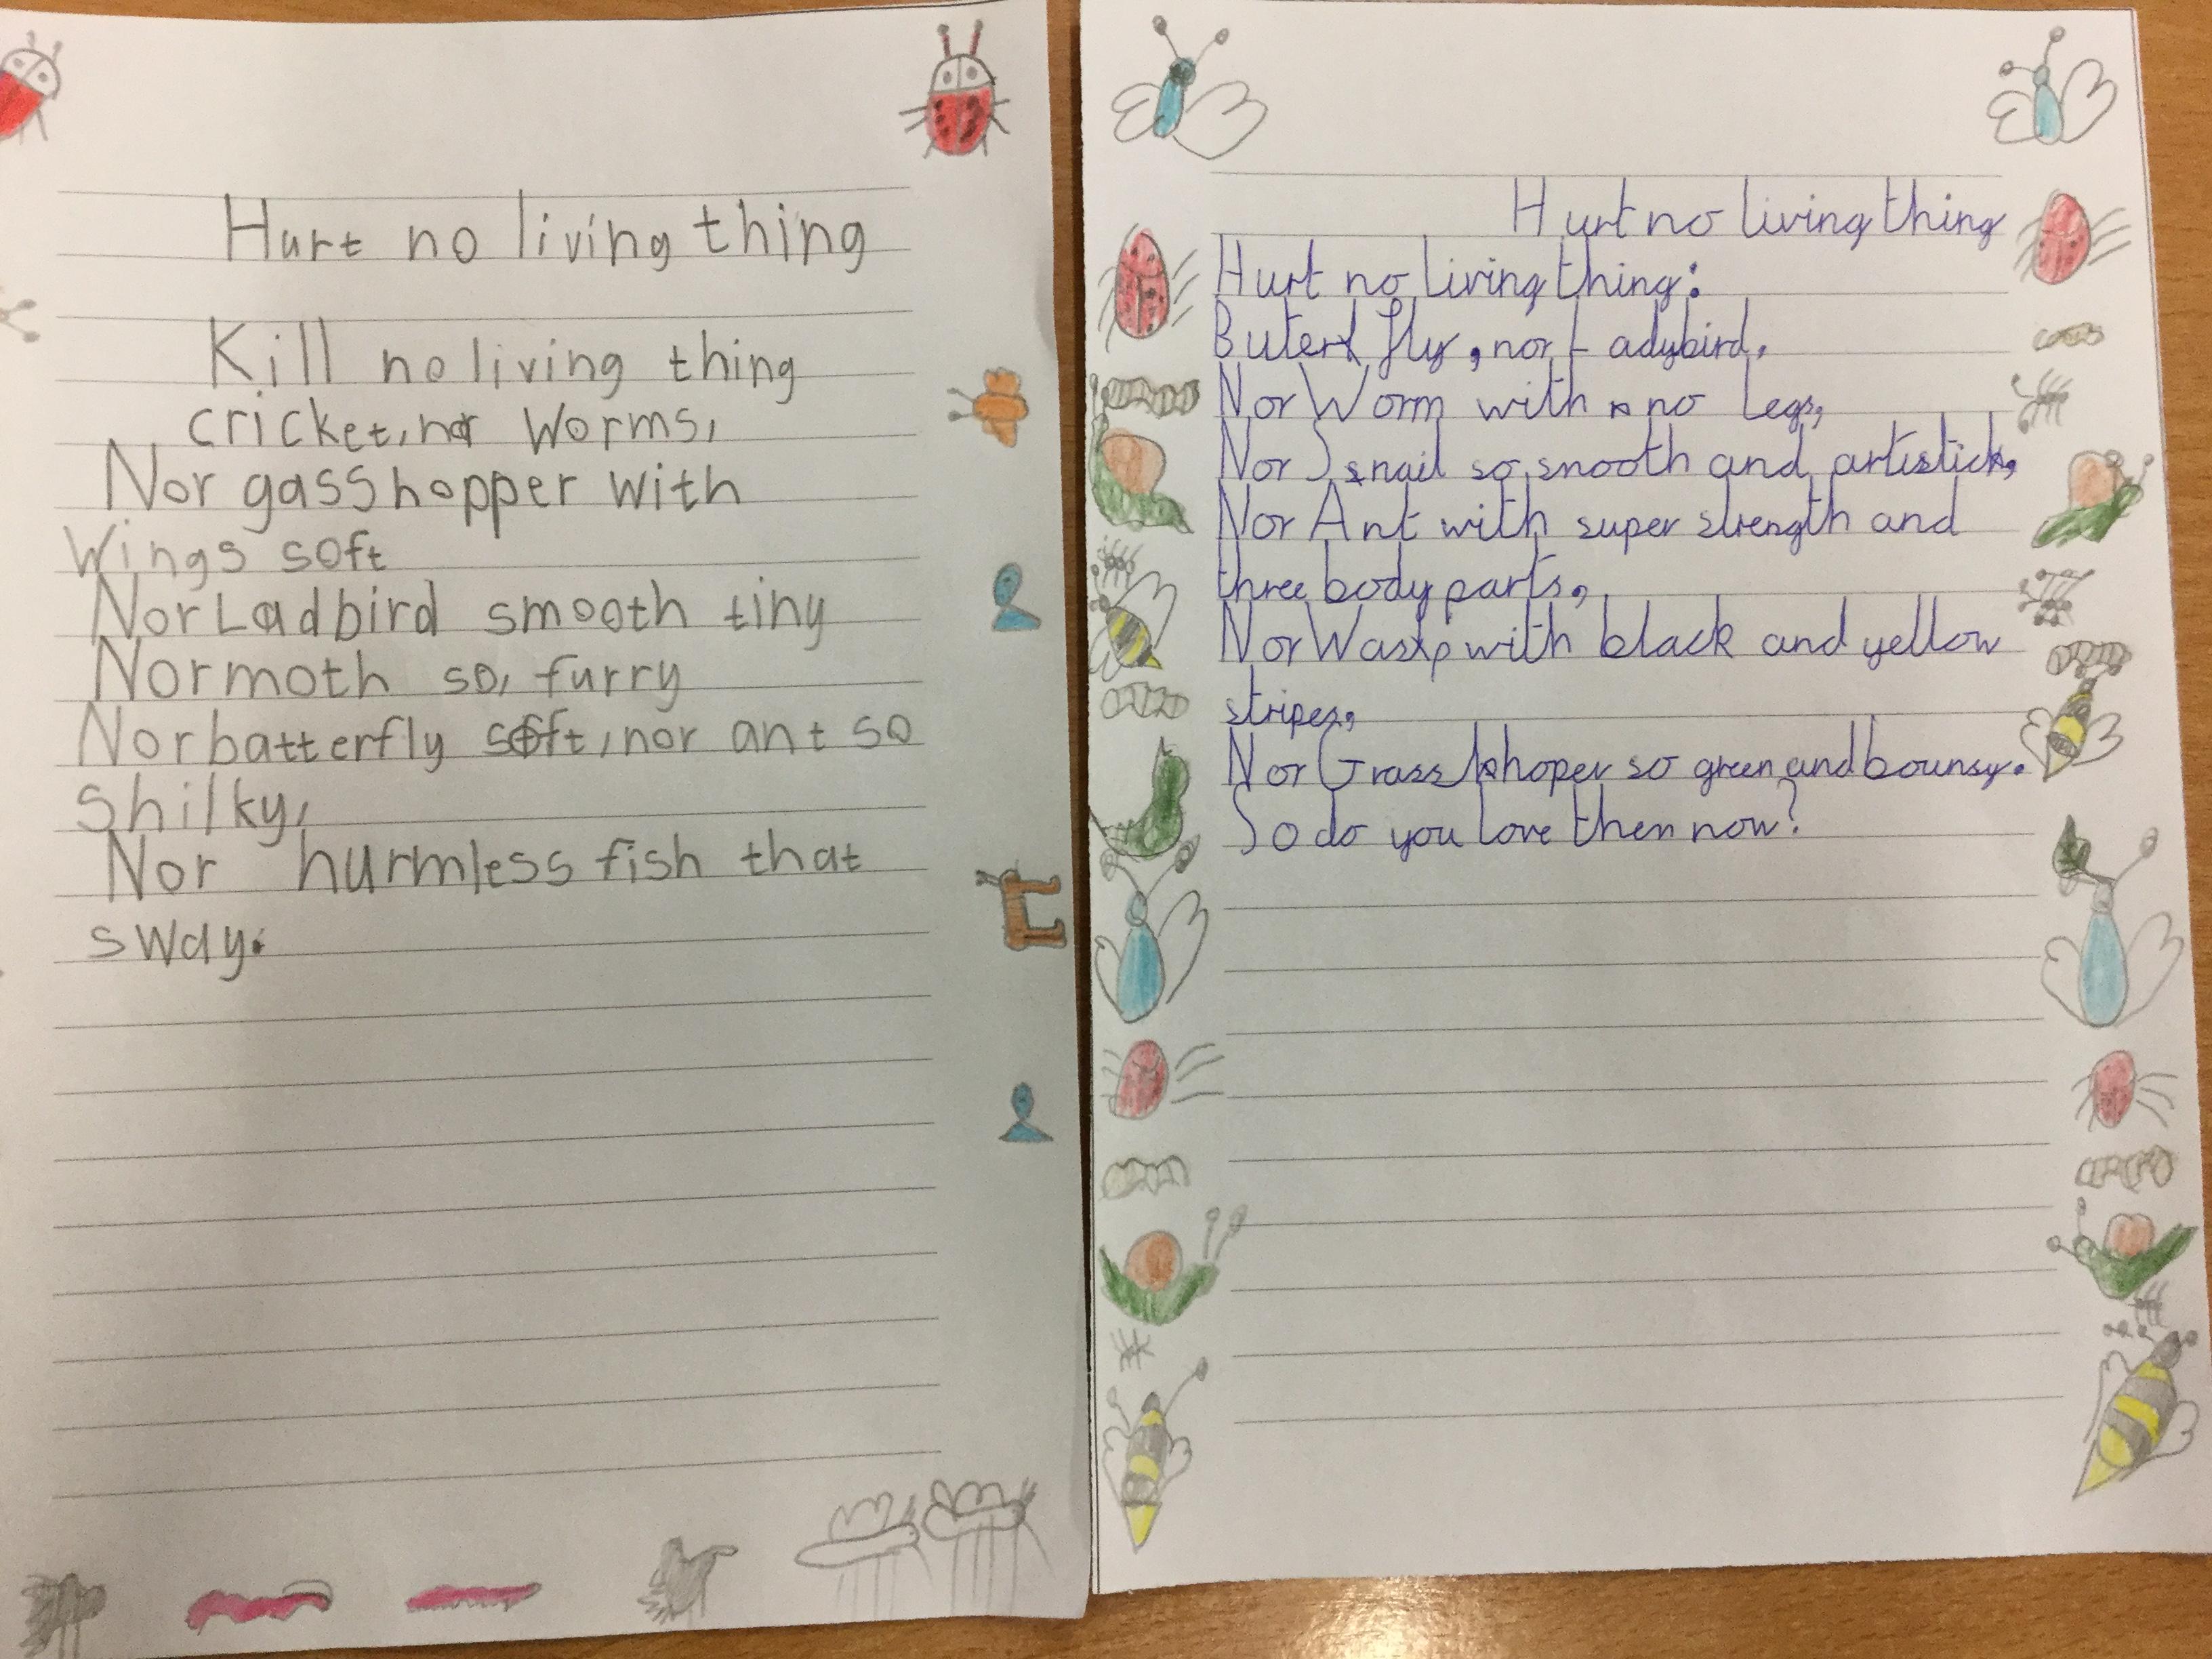 Hurt no living thing
Kill no living thing
cricket, nor Worms,
Nor gasshopper with
Wings soft
Nor Ladbird smooth tiny
Nor moth so, furry
Nor batterfly soft, nor ant so
Shilky,
Nor hurmless fish that
sway.
Hurt no living thing
Hurt no living thing:
Buter fly, nor Ladybird.
Nor Worm with no legs,
Nor Snail so smooth and artistick,
Nor Ant with super strength and
three body parts,
Nor Wasp with black and yellow
stripes,
Nor Grass hoper so green and bounsy.
So do you love them now?